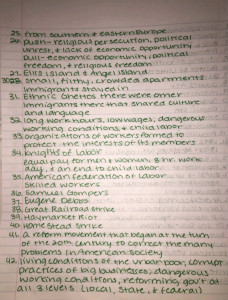 25. from southern & eastern Europe
26. push - religious persecution, political
unrest, & lack of economic opportunity
pull - economic opportunity, political
freedom, & religious freedom
27. Ellis Island & Angel Island
small, filthy, crowded apartments
immigrants stayed in
31. Ethnic Ghettos there were other
immigrants there that shared culture
and language
32. long work hours, low wages, dangerous
working conditions, & child labor
33. organizations of workers formed to
protect the interests of its members
34. Knights of Labor
equal pay for men & women, 8 hr. work
day, & an end to child labor
35. American Federation of Labor
skilled workers
36. Samuel Gompers
37. Eugene Debbs
38. Great Railroad Strike
39. Haymarket Riot
40. Homestead Strike
41. a reform movement that began at the turn
of the 20th century to correct the many
problems in American society
42. living conditions of the urban poor, corrupt
practices of big businesses, dangerous
working conditions, reforming gov't at
all 3 levels (local, state, & federal)